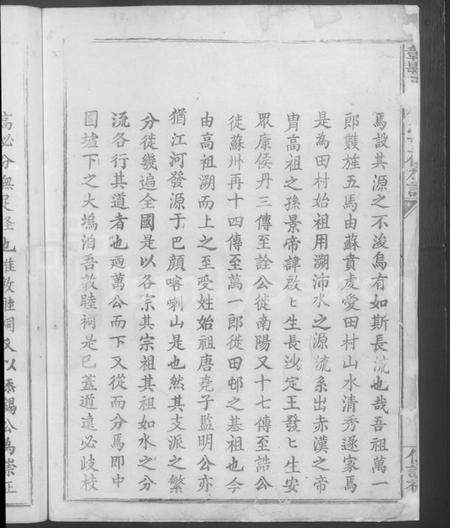 焉設其源之不浚烏有如斯長流也哉吾祖萬一
郎贒旌五馬由蘇賁虔愛田村山水清秀遂家焉
是為田村始祖用溯沛水之源流系出赤漢之帝
胄高祖之孫景帝諱啟匕生長沙定王發匕生安
眾康侯丹三傳至詮公徙南陽又十七傳至誥公
徙蘇州再十四傳至萬一郎徙田邨之基祖也今
由高祖溯而上之至受姓始祖唐堯子監明公亦
猶江河發源于巴顏喀喇山是也然其支派之繁
分徙幾遍全國是以各宗其宗祖其祖如水之分
流各行其道者也廼萬公而下又從而分焉即中
圓墟下之大塢洎吾敦睦祠是已蓋道遠必歧枝
高必分無足怪也惟敦睦祠又以添錫公為崇正